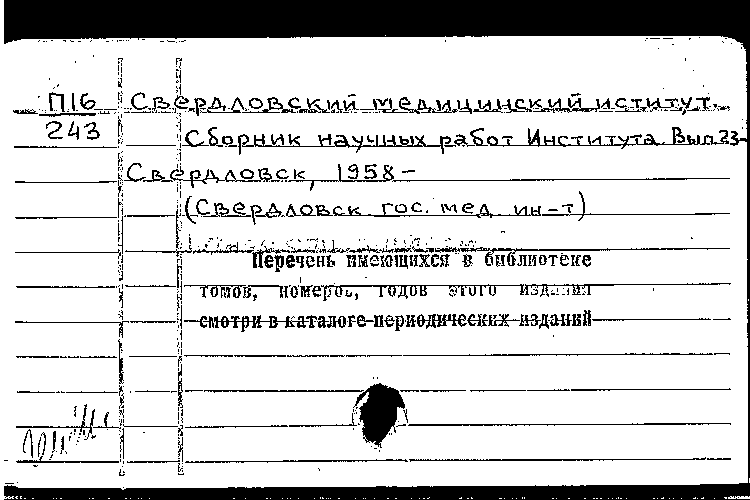 П16
243
Свердловский медицинский иститут.
Сборник научных работ Института. Вып. 23-
Свердловск, 1958 -
(Свердловск. гос. мед. ин-т)
Перечень имеющихся в библиотеке
томов, номеров, годов этого издания
смотри в каталоге периодических изданий